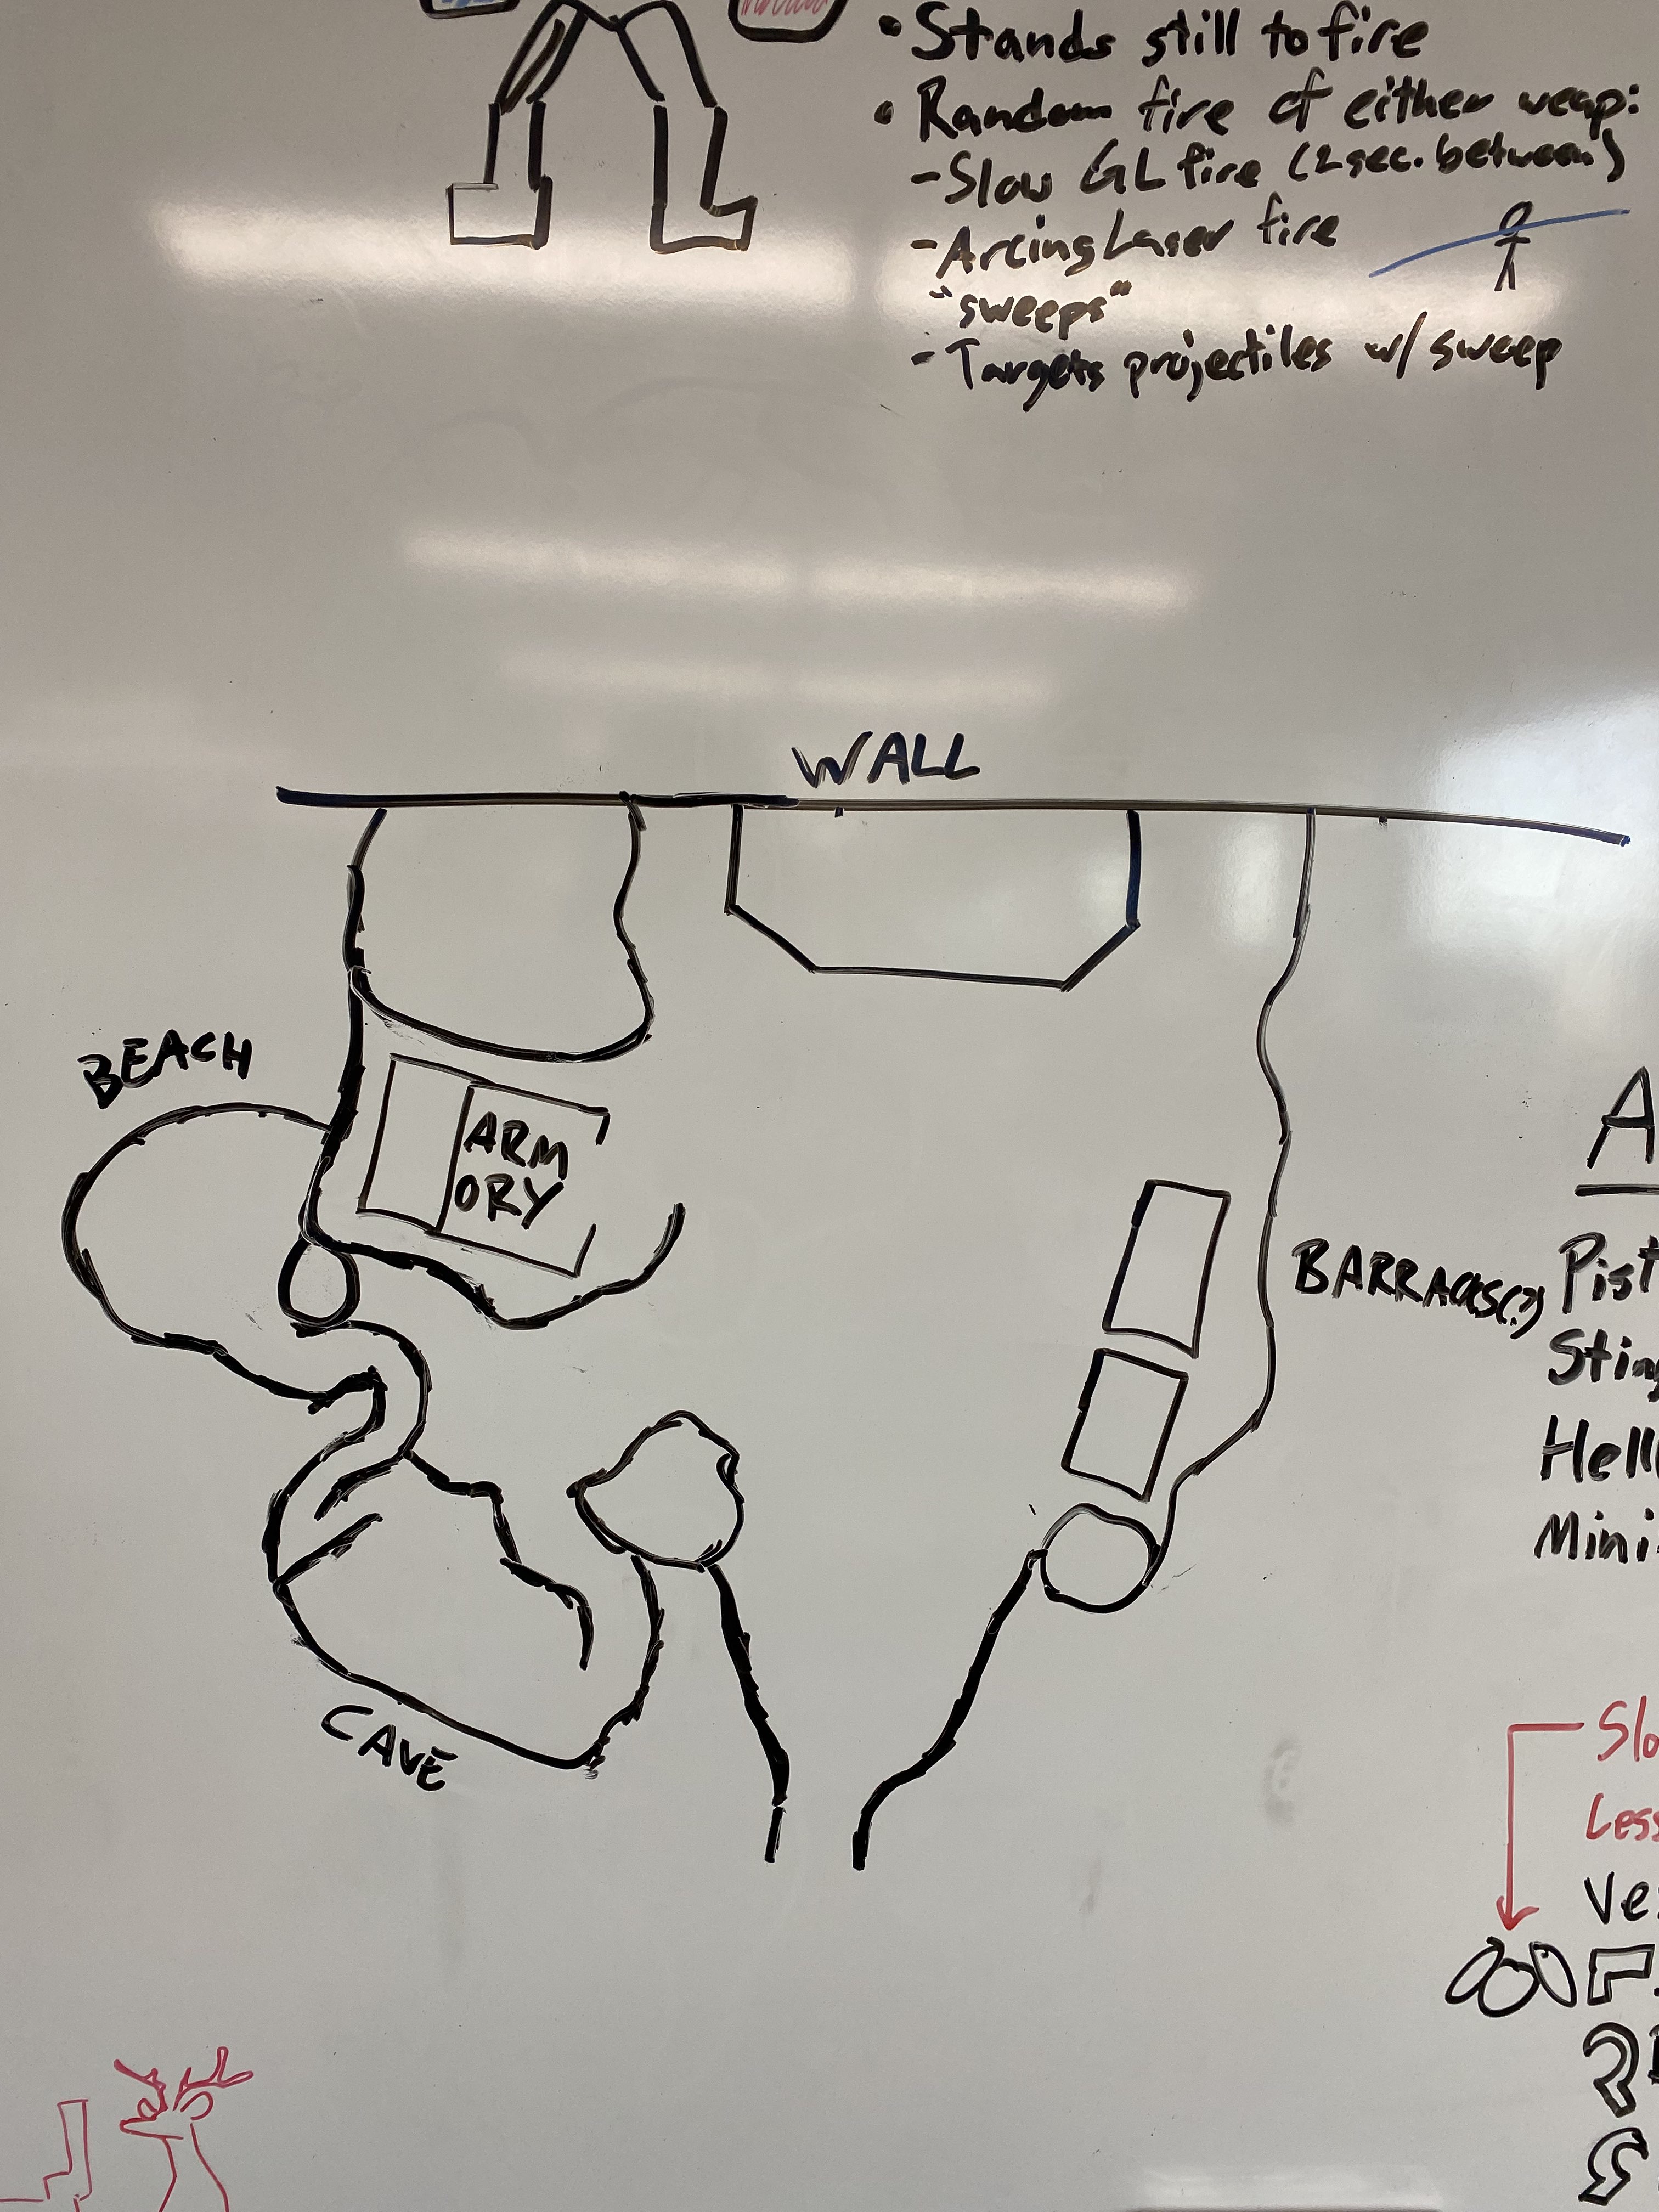 • Stands still to fire
• Random fire of either weap:
- Slow GL fire (2 sec. between)
- Arcing Laser fire
"sweeps"
- Targets projectiles w/ sweep
WALL
BEACH
ARM
ORY
BARRACKS(?)
CAVE
A
Pist
Sting
Hell
Mini-
Slo
Less
Ve